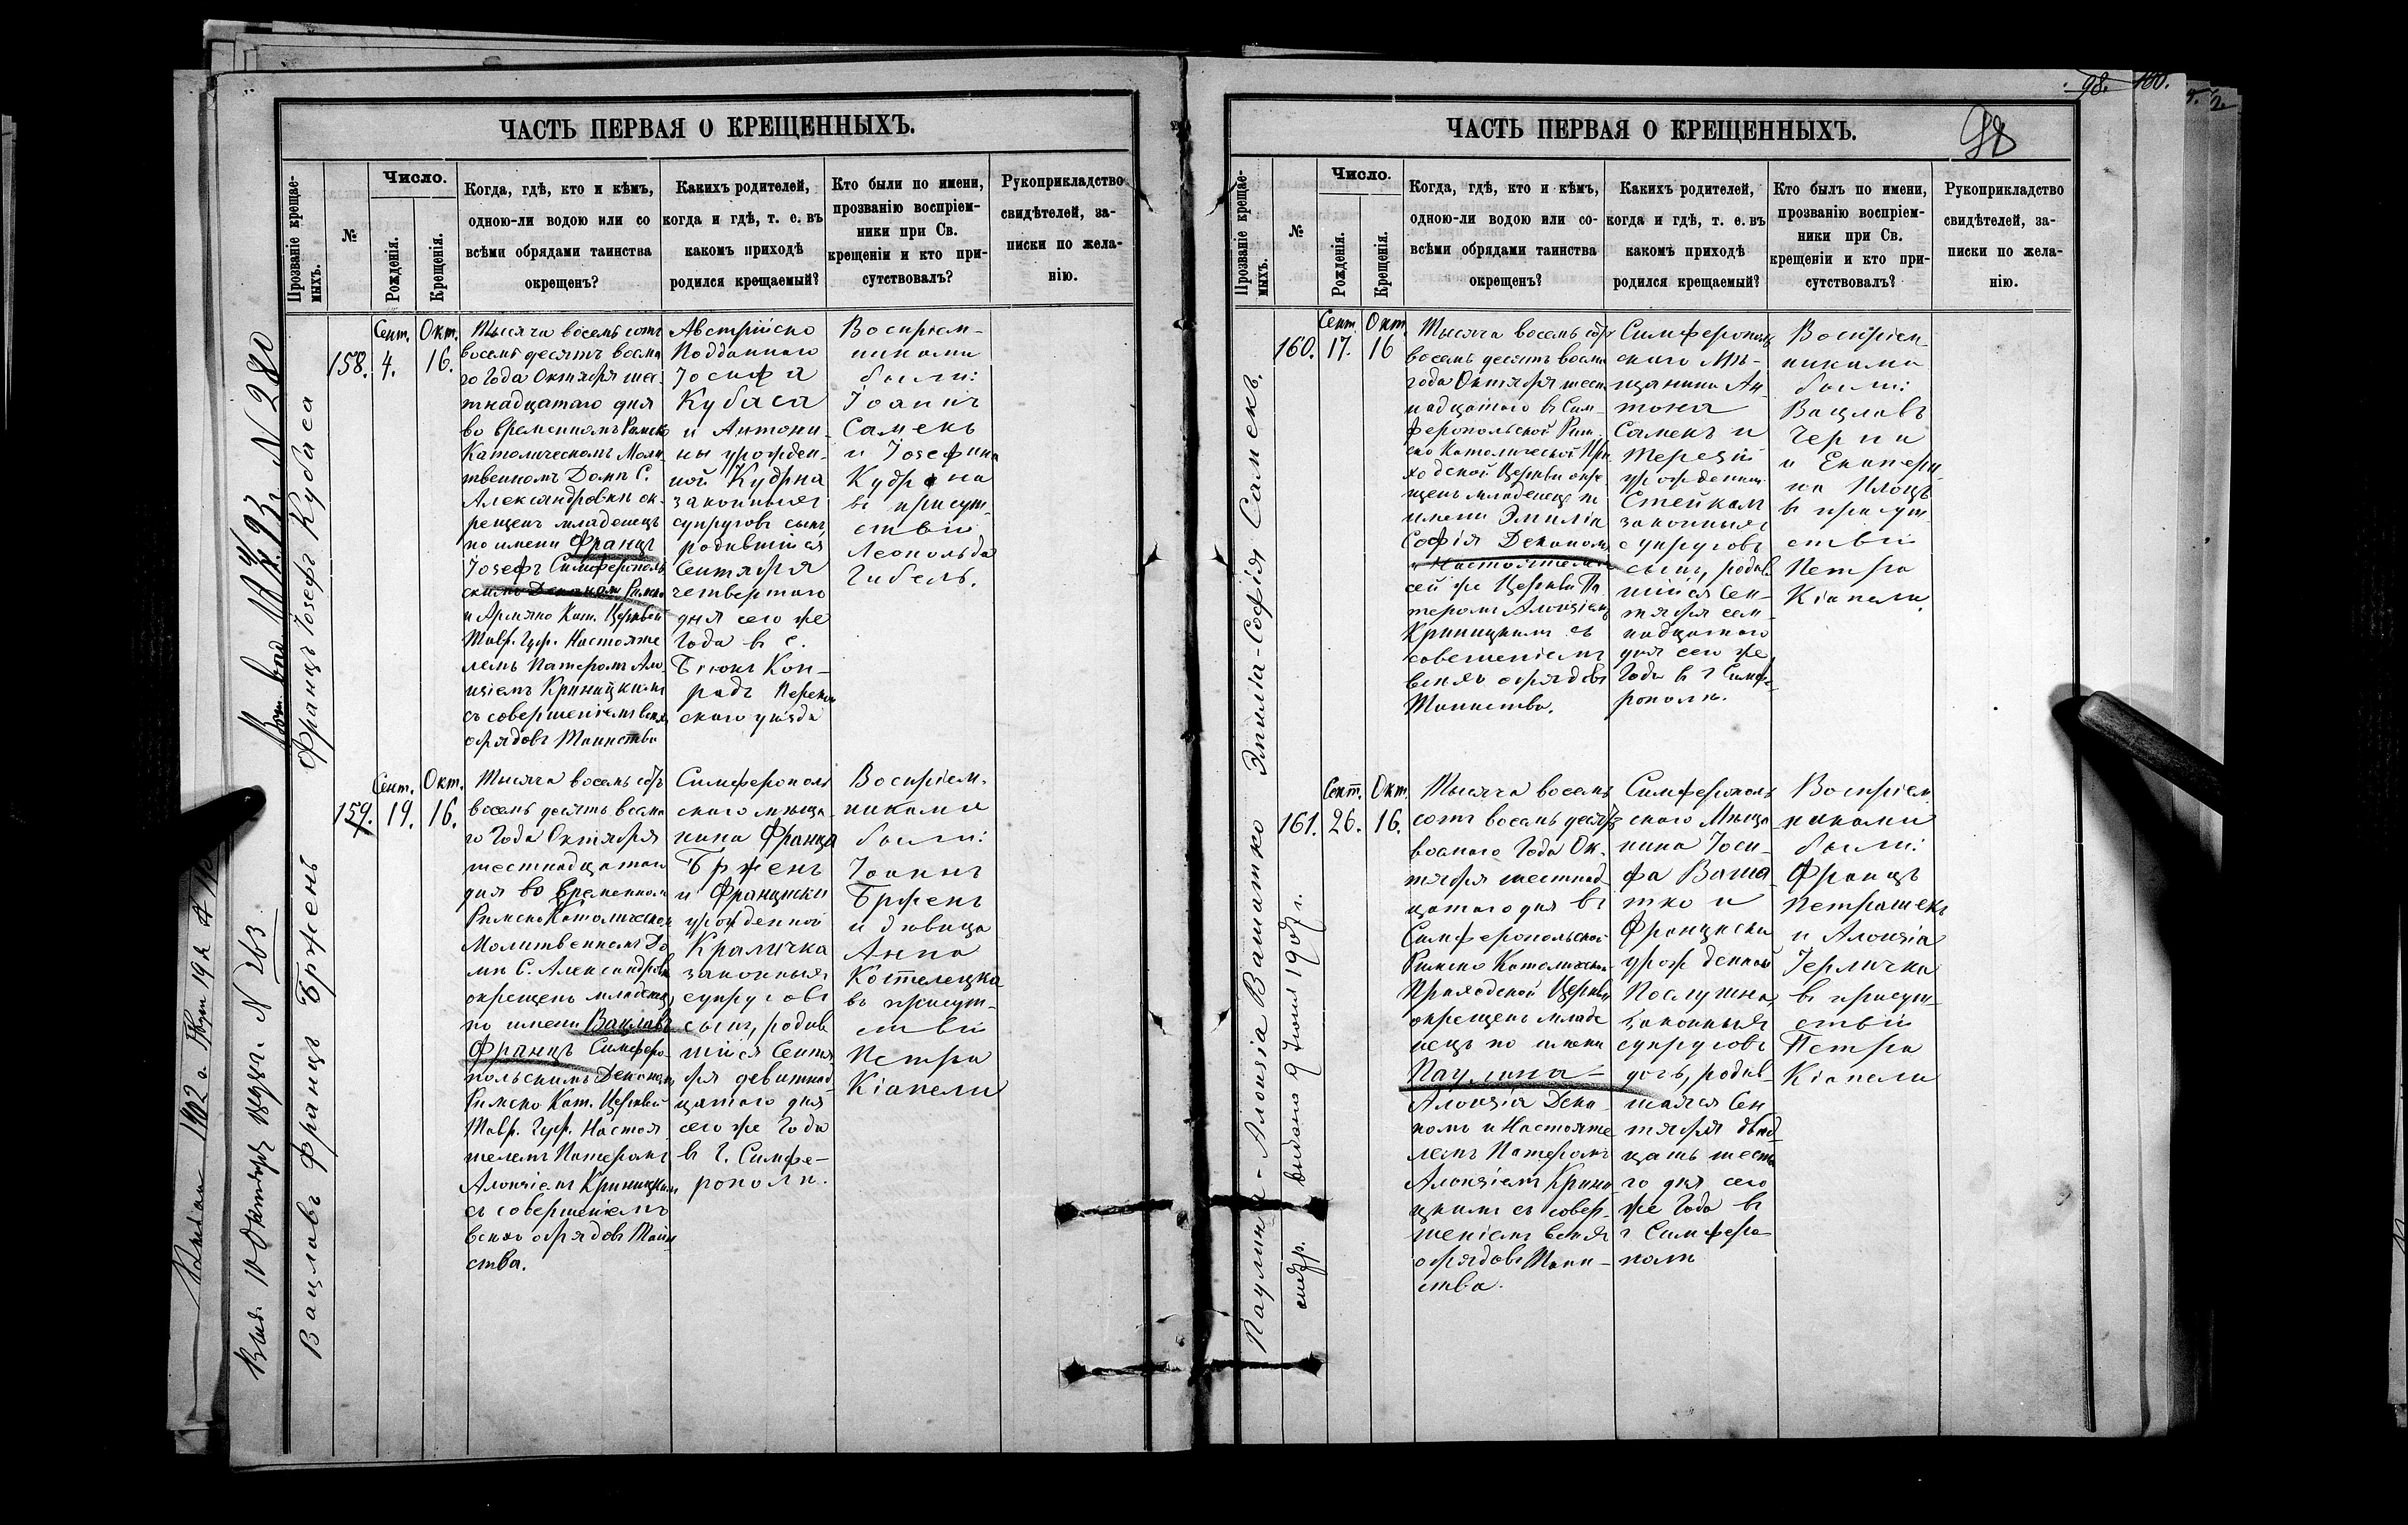 ЧАСТЬ ПЕРВАЯ О КРЕЩЕННЫХЪ.
Прозваніе крещае-
мыхъ.
№
Число.
Рожденія.
Крещенія.
Когда, гдѣ, кто и кѣмъ,
одною-ли водою или со
всѣми обрядами таинства
окрещенъ?
Какихъ родителей,
когда и гдѣ, т. е. въ
какомъ приходѣ
родился крещаемый?
Кто были по имени,
прозванію воспріем-
ники при Св.
крещеніи и кто при-
сутствовалъ?
Рукоприкладство
свидѣтелей, за-
писки по жела-
нію.
N 280
Францъ Іосефъ Кубаса
158.
Сент.
4.
Окт.
16.
Тысяча восемь сотъ
восемь десятъ восма
го Года Октября шес
тнадцатаго дня
во временномъ Римско
Католическомъ Моли
твенномъ Домѣ С.
Александровки ок
рещенъ младенецъ
по имени Францъ
Іосефъ Симферополь
скимъ Деканомъ Римско
и Армяно Кат. Церквей
Тавр. Губ. Настояте
лемъ Патеромъ Ало
изіемъ Криницкимъ
съ совершеніемъ всѣхъ
обрядовъ Таинства
Австрійско
Подданнаго
Іосифа
Кубаса
и Антони-
ны урожден-
ной Кудрна
законныхъ
супруговъ сынъ
родившійся
Сентября
четвертаго
дня сего же
Года въ с.
Біюкъ Кон-
радъ Переко
скаго уѣзда
Воспріем-
никами
были:
Іоаннъ
Самекъ
и Іосефина
Кудрна
въ присут-
ствіи
Леопольда
Гибель.
N 263
Вацлавъ Францъ Бржень
159.
Сент.
19.
Окт.
16.
Тысяча восемь сотъ
восемь десятъ восма
го Года Октября
шестнадцатаго
дня во временномъ
Римско Католическомъ
Молитвенномъ До
мѣ С. Александровки
окрещенъ младенецъ
по имени Вацлавъ
Францъ Симферо-
польскимъ Деканомъ
Римско Кат. Церквей
Тавр. Губ. Настоя
телемъ Патеромъ
Алоизіемъ Криницкимъ
съ совершеніемъ
всѣхъ обрядовъ Таин
ства.
Симферополь
скаго мѣща
нина Франца
Бржень
и Франциски
урожденной
Краличка
законныхъ
супруговъ
сынъ, родив
шійся Сентя
бря девятнад
цатаго дня
сего же Года
въ г. Симфе-
рополѣ.
Воспріем-
никами
были:
Іоаннъ
Бржень
и дѣвица
Анна
Костелецка
въ присут-
ствіи
Петра
Кіапели
98. 100.
98
ЧАСТЬ ПЕРВАЯ О КРЕЩЕННЫХЪ.
Прозваніе крещае-
мыхъ.
№
Число.
Рожденія.
Крещенія.
Когда, гдѣ, кто и кѣмъ,
одною-ли водою или со-
всѣми обрядами таинства
окрещенъ?
Какихъ родителей,
когда и гдѣ, т. е. въ
какомъ приходѣ
родился крещаемый?
Кто былъ по имени,
прозванію воспріем-
ники при Св.
крещеніи и кто при-
сутствовалъ?
Рукоприкладство
свидѣтелей, за-
писки по жела-
нію.
Эмилія-Софія Самекъ.
160.
Сент.
17.
Окт.
16
Тысяча восемь сотъ
восемь десятъ восма
года Октября шест
надцатаго въ Сим-
феропольской Рим-
ско Католической При
ходской Церкви окре
щенъ младенецъ по
имени Эмилія
Софія Деканомъ
и Настоятелемъ
сей же Церкви Па
теромъ Алоизіемъ
Криницкимъ съ
совершеніемъ
всѣхъ обрядовъ
Таинства.
Симферополь
скаго Мѣ-
щанина Ан
тона
Самекъ и
Терезіи
урожденной
Стейкалъ
законныхъ
супруговъ
сынъ, родив
шійся Сен-
тября сем-
надцатаго
дня сего же
Года въ г Симфе-
рополѣ.
Воспріем
никами
были:
Вацлавъ
Черни
и Екатери
на Плоцъ
въ присут
ствіи
Петра
Кіапели.
Паулина-Алоизія Вататко
выдано 9 Іюня 1907 г.
161.
Сент.
26.
Окт.
16.
Тысяча восемь
сотъ восемь десятъ
восмаго Года Ок-
тября шестнад-
цатаго дня въ
Симферопольской
Римско Католической
Приходской Церкви
окрещенъ младе
нецъ по имени
Паулина-
Алоизія Дека-
номъ и Настояте
лемъ Патеромъ
Алоизіемъ Крини-
цкимъ съ совер-
шеніемъ всѣхъ
обрядовъ Таин-
ства.
Симферополь
скаго Мѣща
нина Іоси-
фа Вата
тко и
Франциски
урожденной
Послушна,
законныхъ
супруговъ
дочь, родив-
шаяся Сен
тября двад-
цать шеста
го дня сего
же Года въ
г Симферо-
полѣ
Воспріем
никами
были:
Францъ
Петрашекъ
и Алоизія
Іерличка
въ присут-
ствіи
Петра
Кіапели